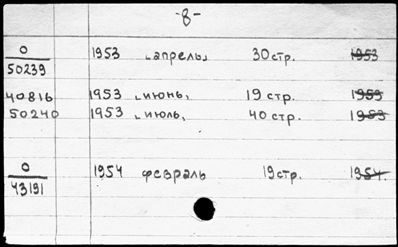 -8-
0 1953 „апрель„ 30 стр. 1953
50239
40816 1953 „июнь„ 19 стр. 1953
50240 1953 „июль„ 40 стр. 1953
0 1954 февраль 19 стр. 1954.
43191